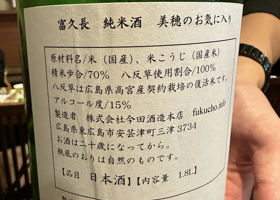 富久長　純米酒　美穂のお気に入り
原材料名／米（国産）、米こうじ（国産米）
精米歩合／70%　八反草使用割合／100%
八反草は広島県高宮産契約栽培の復活米です。
アルコール度／15%
製造者　株式会社今田酒造本店　fukucho.info
広島県東広島市安芸津町三津3734
お酒は二十歳になってから。
瓶底のおりは自然のものです。
【品目　日本酒】【内容量　1.8L】